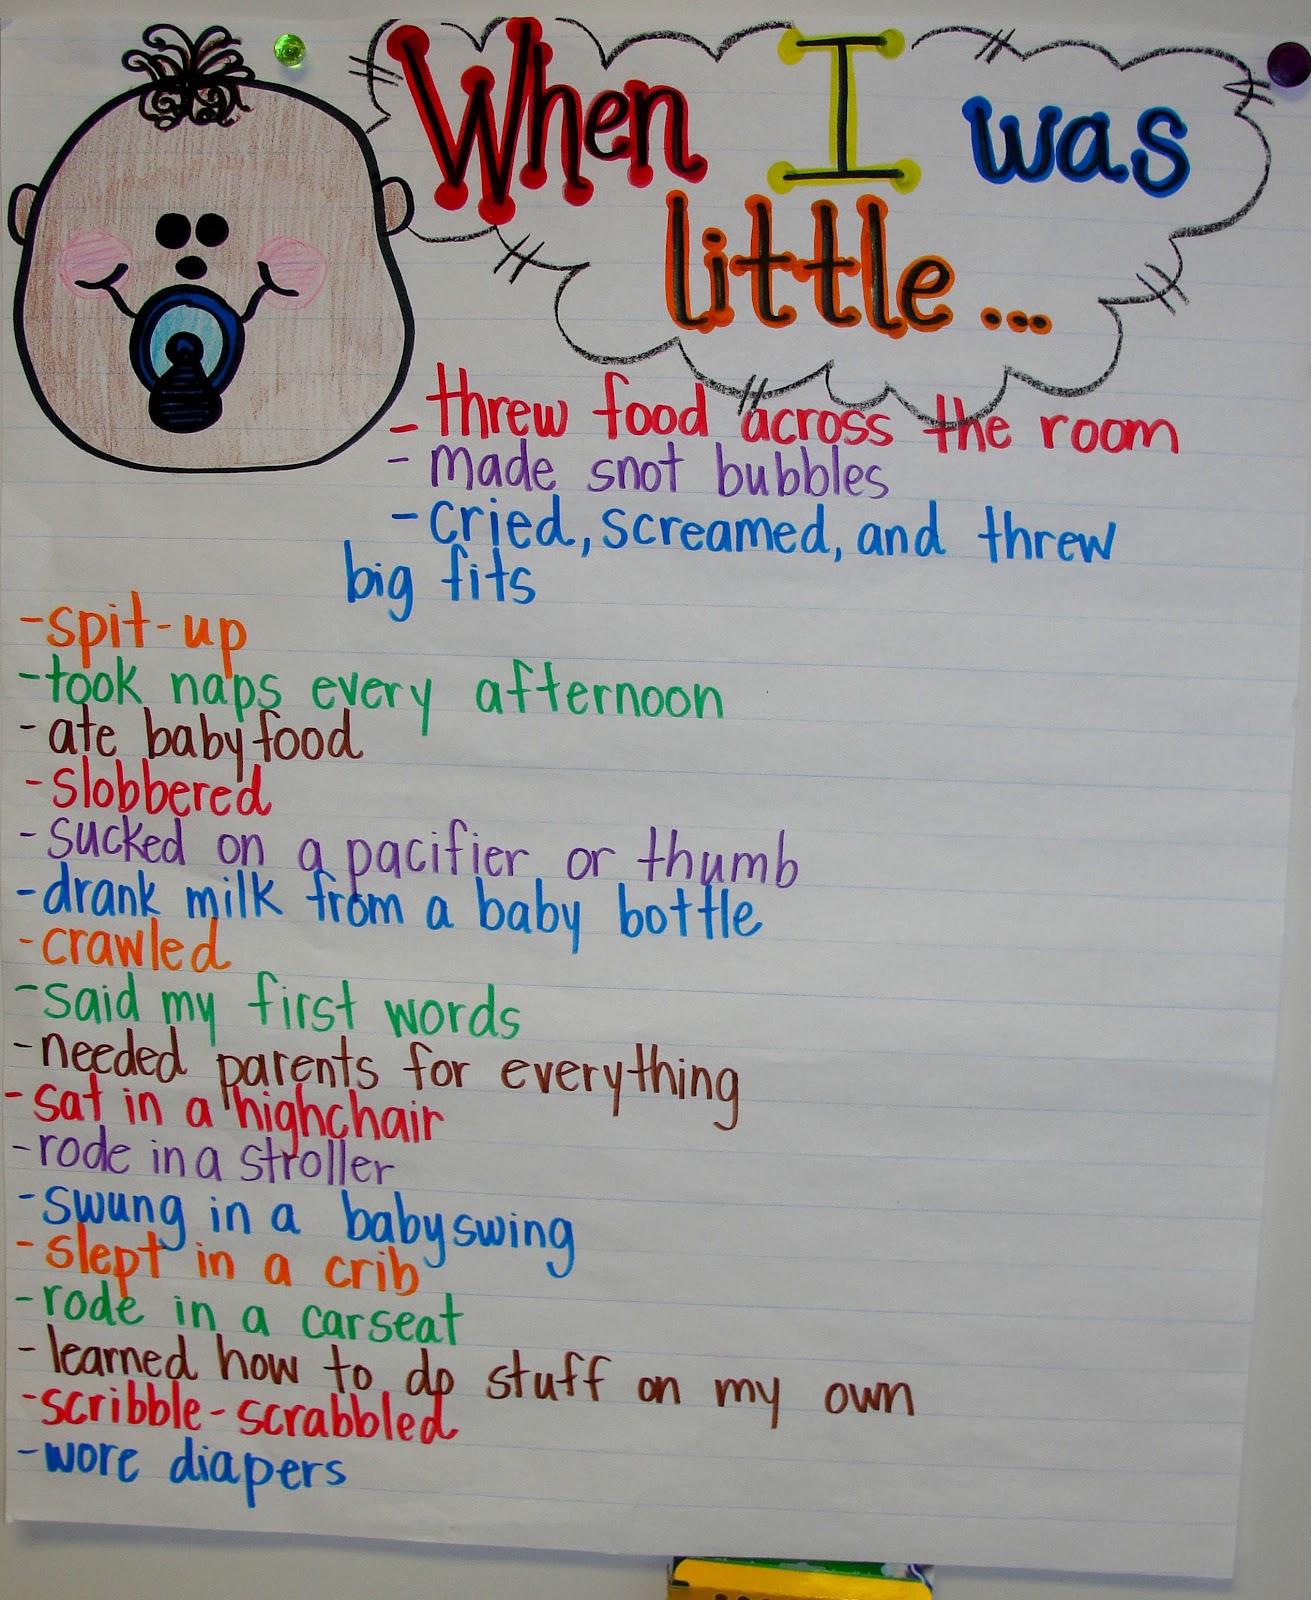 When I was
little...
- threw food across the room
- made snot bubbles
- cried, screamed, and threw
big fits
- spit-up
- took naps every afternoon
- ate baby food
- slobbered
- sucked on a pacifier or thumb
- drank milk from a baby bottle
- crawled
- said my first words
- needed parents for everything
- sat in a highchair
- rode in a stroller
- swung in a baby swing
- slept in a crib
- rode in a carseat
- learned how to do stuff on my own
- scribble-scrabbled
- wore diapers